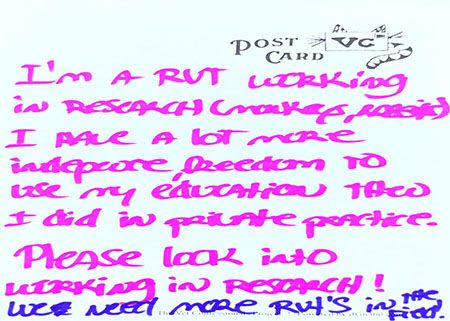 POST CARD
VG
I'm a RVT working
in research (monkeys, rabbits)
I have a lot more
indepence, freedom to
use my education then
I did in private practice.
Please look into
working in research!
We need more RVT's in the field!